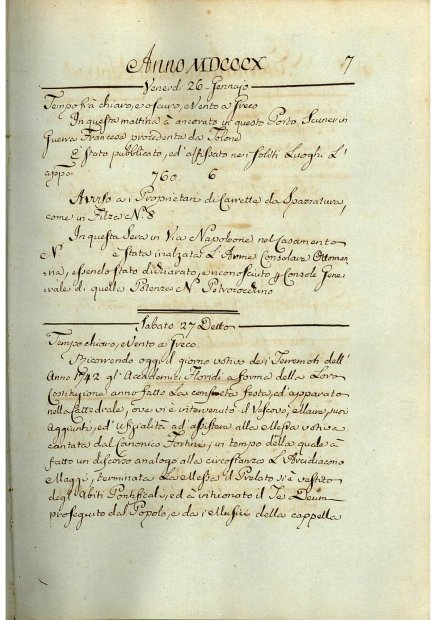 Anno MDCCCX 7
Venerdi 26 Gennajo
Tempo frà chiaro, e oscuro, e Vento a Greco
In questa mattina à ancorato in questo Porto Scuner in
Guerra Francese procedente da Tolone
È stato pubblicato, ed' affissato nei soliti Luoghi L'
appo: 760. 6
Avviso ai Proprietari di Carrette da Spazzatura,
come in Filza N.º 8
In questa Sera in Via Napoleone nel Casamento
N.º è Stata inalzata L'Arme Consolare Ottoma-
na, essendo stato dichiarato, e riconosciuto p Console Gene-
rale di quella Potenza N.
Sabato 27 Detto
Tempo chiaro, e Vento a Greco
Ricorrendo oggi il giorno votivo dei Terremoti dell'
Anno 1742 gl'Accademici Floridi a forma della Loro
Costituzione anno fatto La consueta festa, ed' apparato
nella Cattedrale, ove vi è intervenuto il Vescovo, e Maire, suoi
Aggiunti, ed' Ufizialità ad' assistere alla Messa votiva
cantata dal Canonico ; in tempo della quale à
fatto un discorso analogo alla circostanza L'Arcidiacono
Maggi; terminata La Messa il Prelato si è vestito
degl'Abiti Pontificali, ed à intuonato il Te Deum
proseguito dal Popolo, e dai Musici della cappella